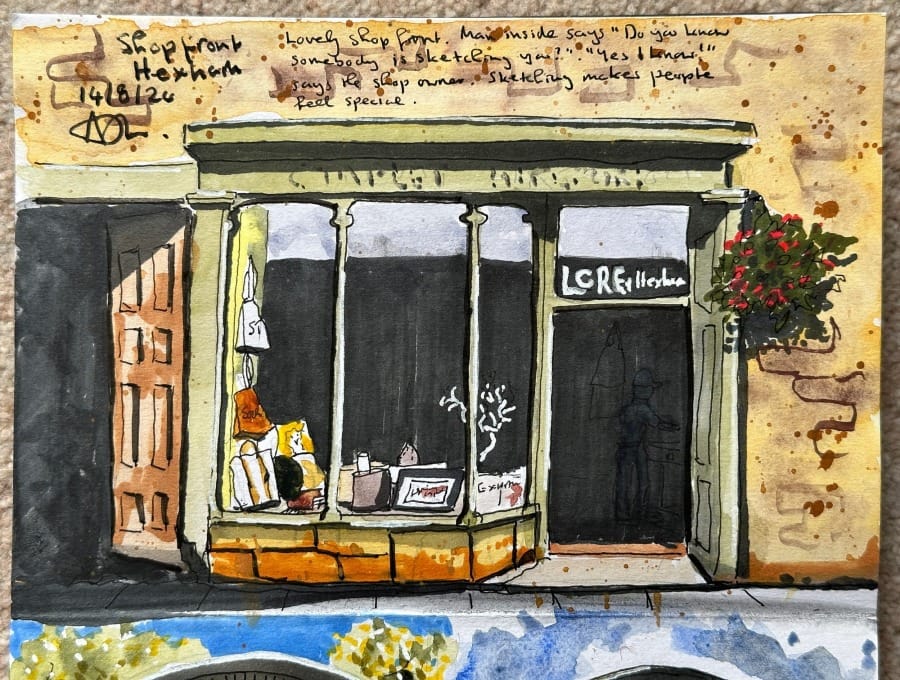 Shopfront
Hexham
14/8/24
Lovely shop front. Man inside says "Do you know
somebody is sketching you?". "Yes I know!"
says the shop owner. Sketching makes people
feel special.
LCRE of Hexham